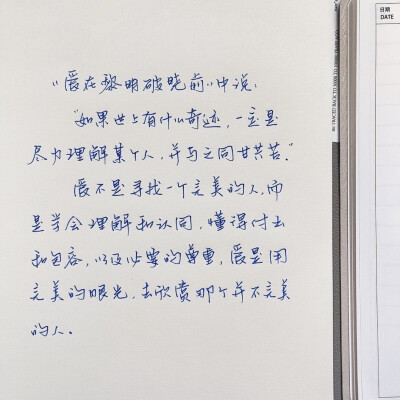 “爱在黎明破晓前”中说：
“如果世上有什么奇迹，一定是
尽力理解某个人，并与之同甘共苦。”
爱不是寻找一个完美的人，而
是学会理解和认同，懂得付出
和包容，以及必要的尊重，爱是用
完美的眼光，去欣赏那个并不完美
的人。
日期
DATE